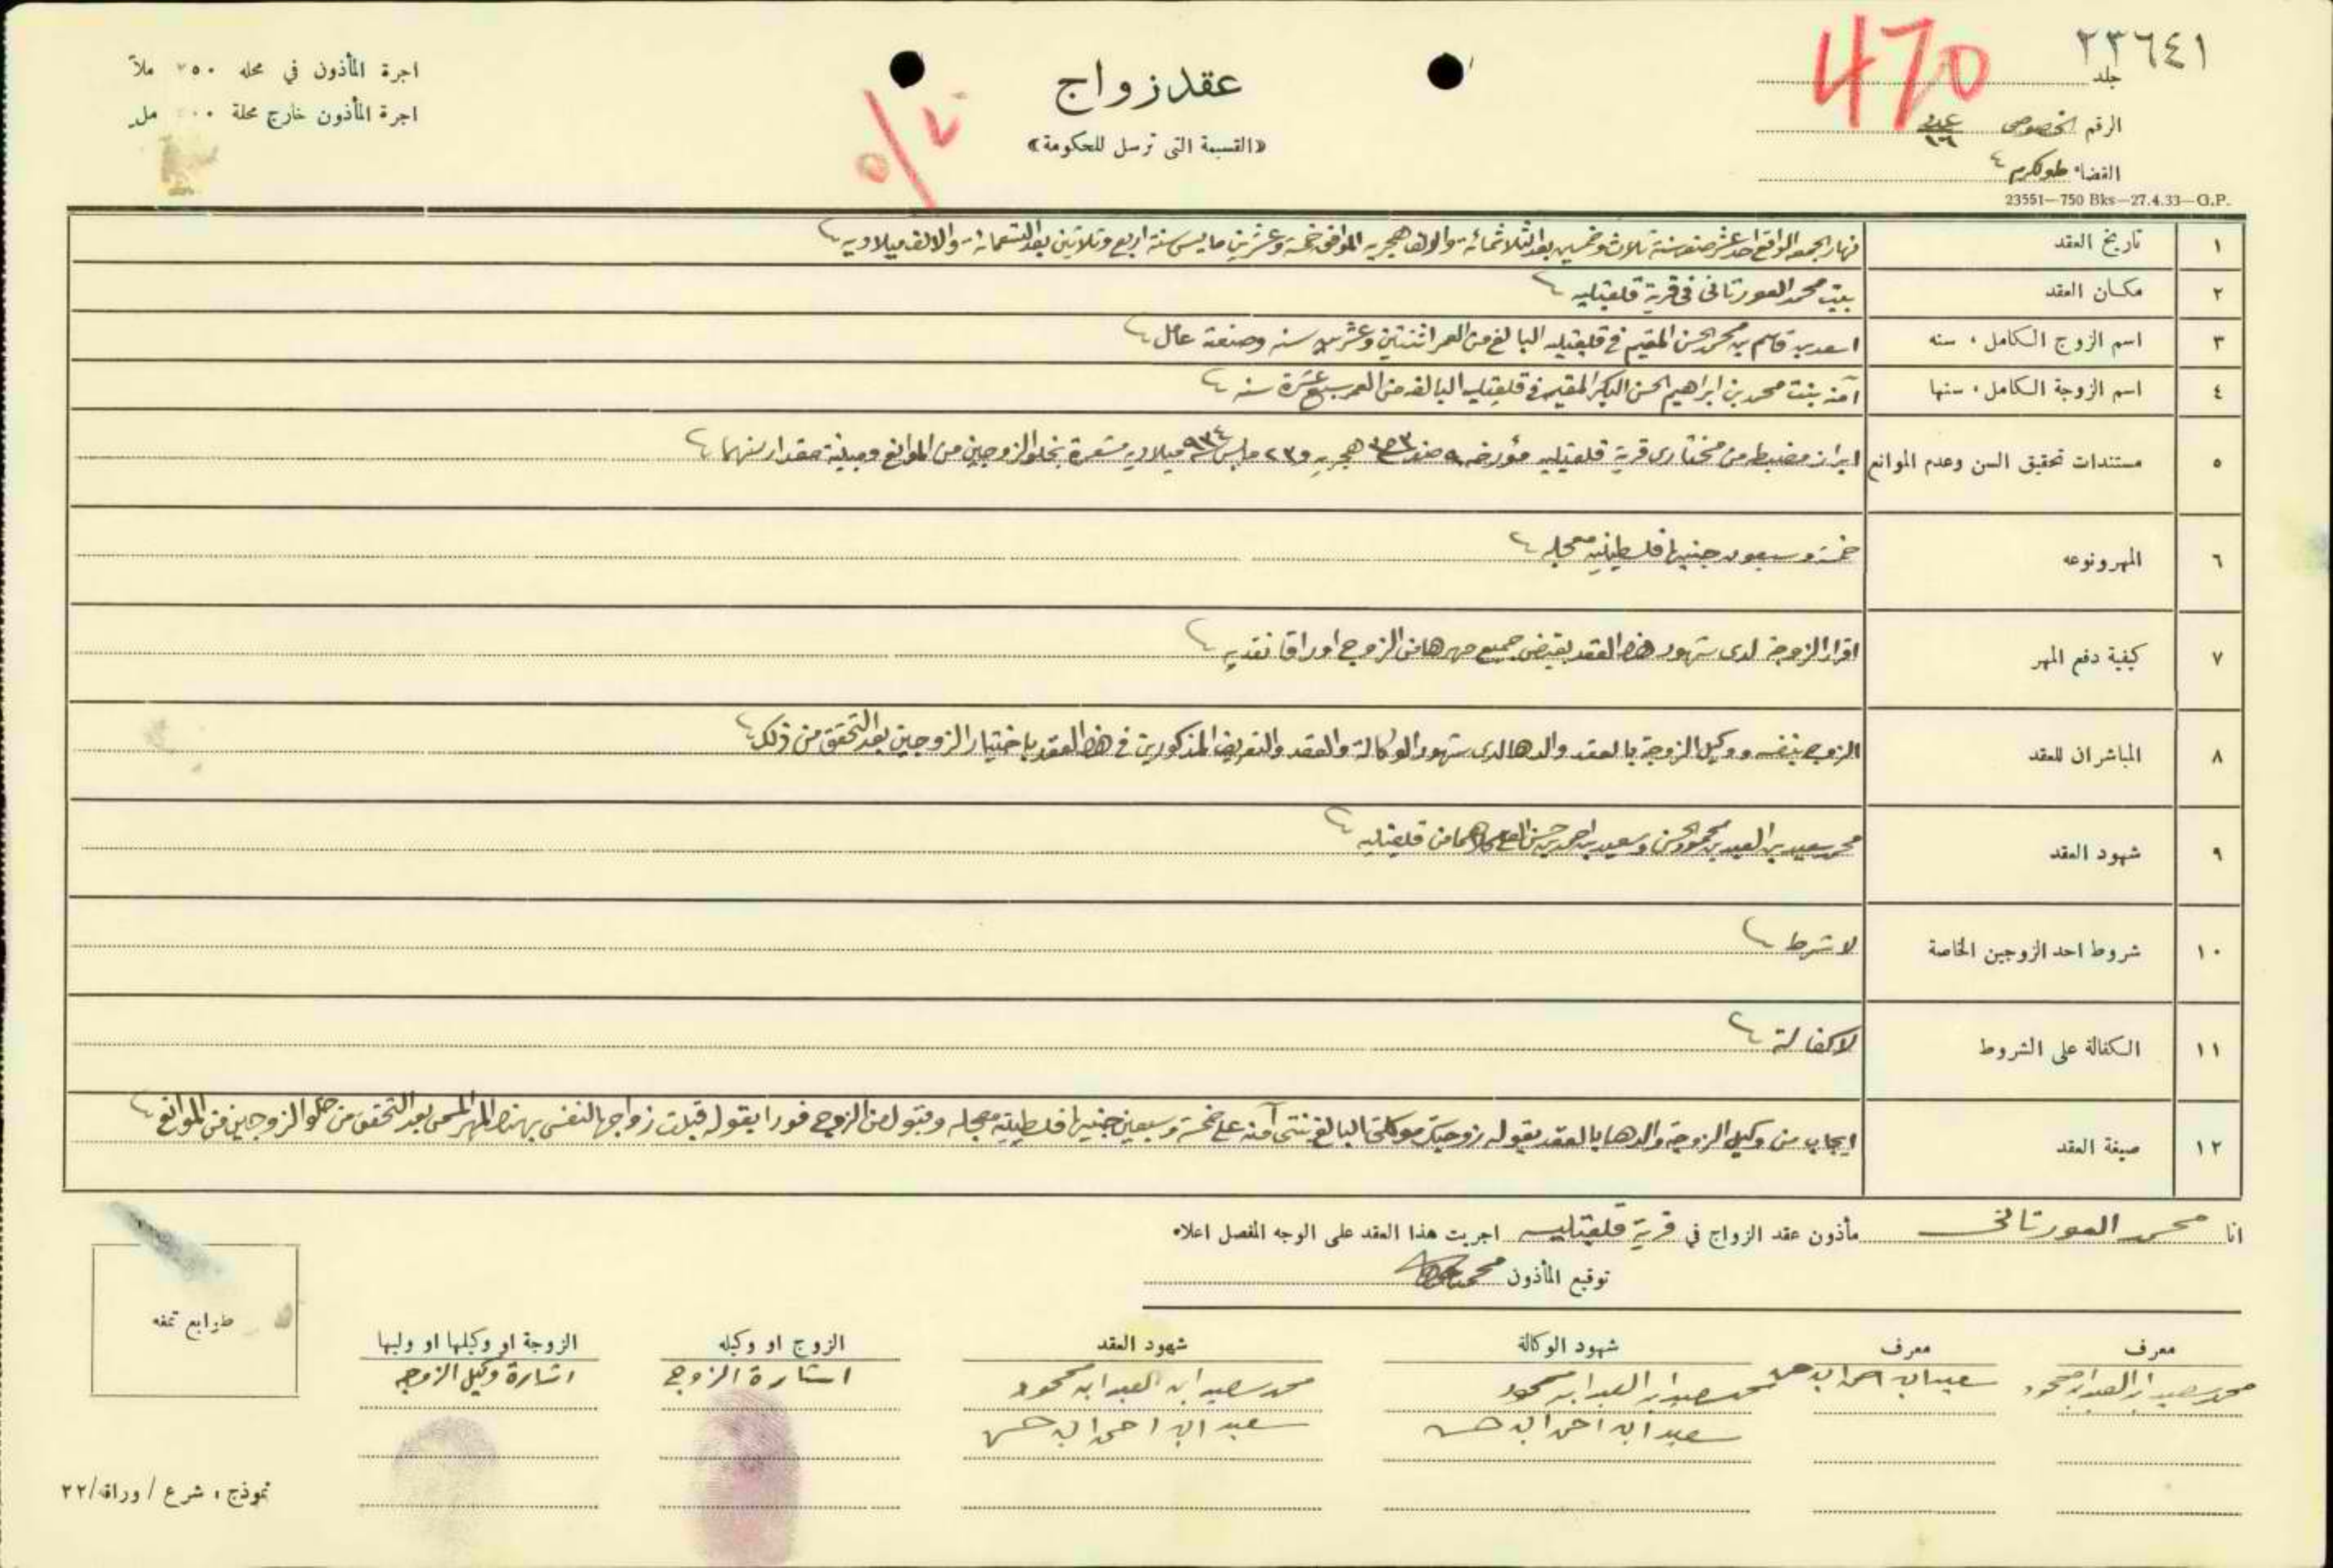 ٢٣٦٤١
470
جلد
الرقم الخصوصي عدد ١٦
القضاء طولكرم
23551—750 Bks—27.4.33—G.P.
عقد زواج
«القسيمة التى ترسل للحكومة»
اجرة المأذون في محله ٢٥٠ ملاً
اجرة المأذون خارج محلة مل
١ تاريخ العقد نهار الجمعه الواقع احد عشر صفر سنة ثلاث وخمسين بعد الثلاثمائة والالف هجريه الموافق خمسة وعشرين مايس سنة اربع وثلاثين بعد التسعمائة والالف ميلاديه
٢ مكان العقد بيت محمد العورتانى فى قرية قلقيليه
٣ اسم الزوج الكامل ، سنه اسعد بن قاسم بن محمد الحسن المقيم في قلقيليه البالغ من العمر اثنتين وعشرين سنه وصنعته عامل
٤ اسم الزوجة الكامل ، سنها آمنه بنت محمد بن ابراهيم الحسن البكر المقيمه في قلقيليه البالغه من العمر سبع عشرة سنه
٥ مستندات تحقيق السن وعدم الموانع ابراز مضبطه من مختارى قرية قلقيليه مؤرخه ٩ صفر ٣٥٣ هجريه و ٢٣ مايس سنة ٩٣٤ ميلاديه مشعرة بخلو الزوجين من الموانع ومبينة مقدار سنهما
٦ المهر ونوعه خمسة وسبعون جنيها فلسطينيه معجله
٧ كيفية دفع المهر اقرار الزوجة لدى شهود هذا العقد بقبض جميع مهرها من الزوج اوراقا نقديه
٨ المباشران للعقد الزوج بنفسه ووكيل الزوجة بالعقد والدها لدى شهود الوكالة والعقد والتعريف المذكورين في هذا العقد باختيار الزوجين بعد التحقق من ذلك
٩ شهود العقد محمد سعيد بن العبد بن محمود الحسن وسعيد بن احمد بن حسن كلاهما من قلقيليه
١٠ شروط احد الزوجين الخاصة لا شرط
١١ الكفالة على الشروط لا كفالة
١٢ صيغة العقد ايجاب من وكيل الزوجة والدها بالعقد بقوله زوجتك موكلتى البالغ بنتى آمنه على خمسة وسبعين جنيها فلسطينيه معجله وقبول من الزوج فورا بقوله قبلت زواجها لنفسى بهذا المهر المسمى بعد التحقق من خلو الزوجين من الموانع
انا محمد العورتانى مأذون عقد الزواج في قرية قلقيليه اجريت هذا العقد على الوجه المفصل اعلاه
توقيع المأذون محمد
معرف معرف شهود الوكالة شهود العقد الزوج او وكيله الزوجة او وكيلها او وليها
محمد سعيد ابن العبد ابن محمود سعيد ابن احمد ابن حسن محمد سعيد ابن العبد ابن محمود محمد سعيد ابن العبد ابن محمود اشارة الزوج اشارة وكيل الزوجه
سعيد ابن احمد ابن حسن سعيد ابن احمد ابن حسن
طوابع تمغه
نموذج ، شرع / وراقه/٢٢